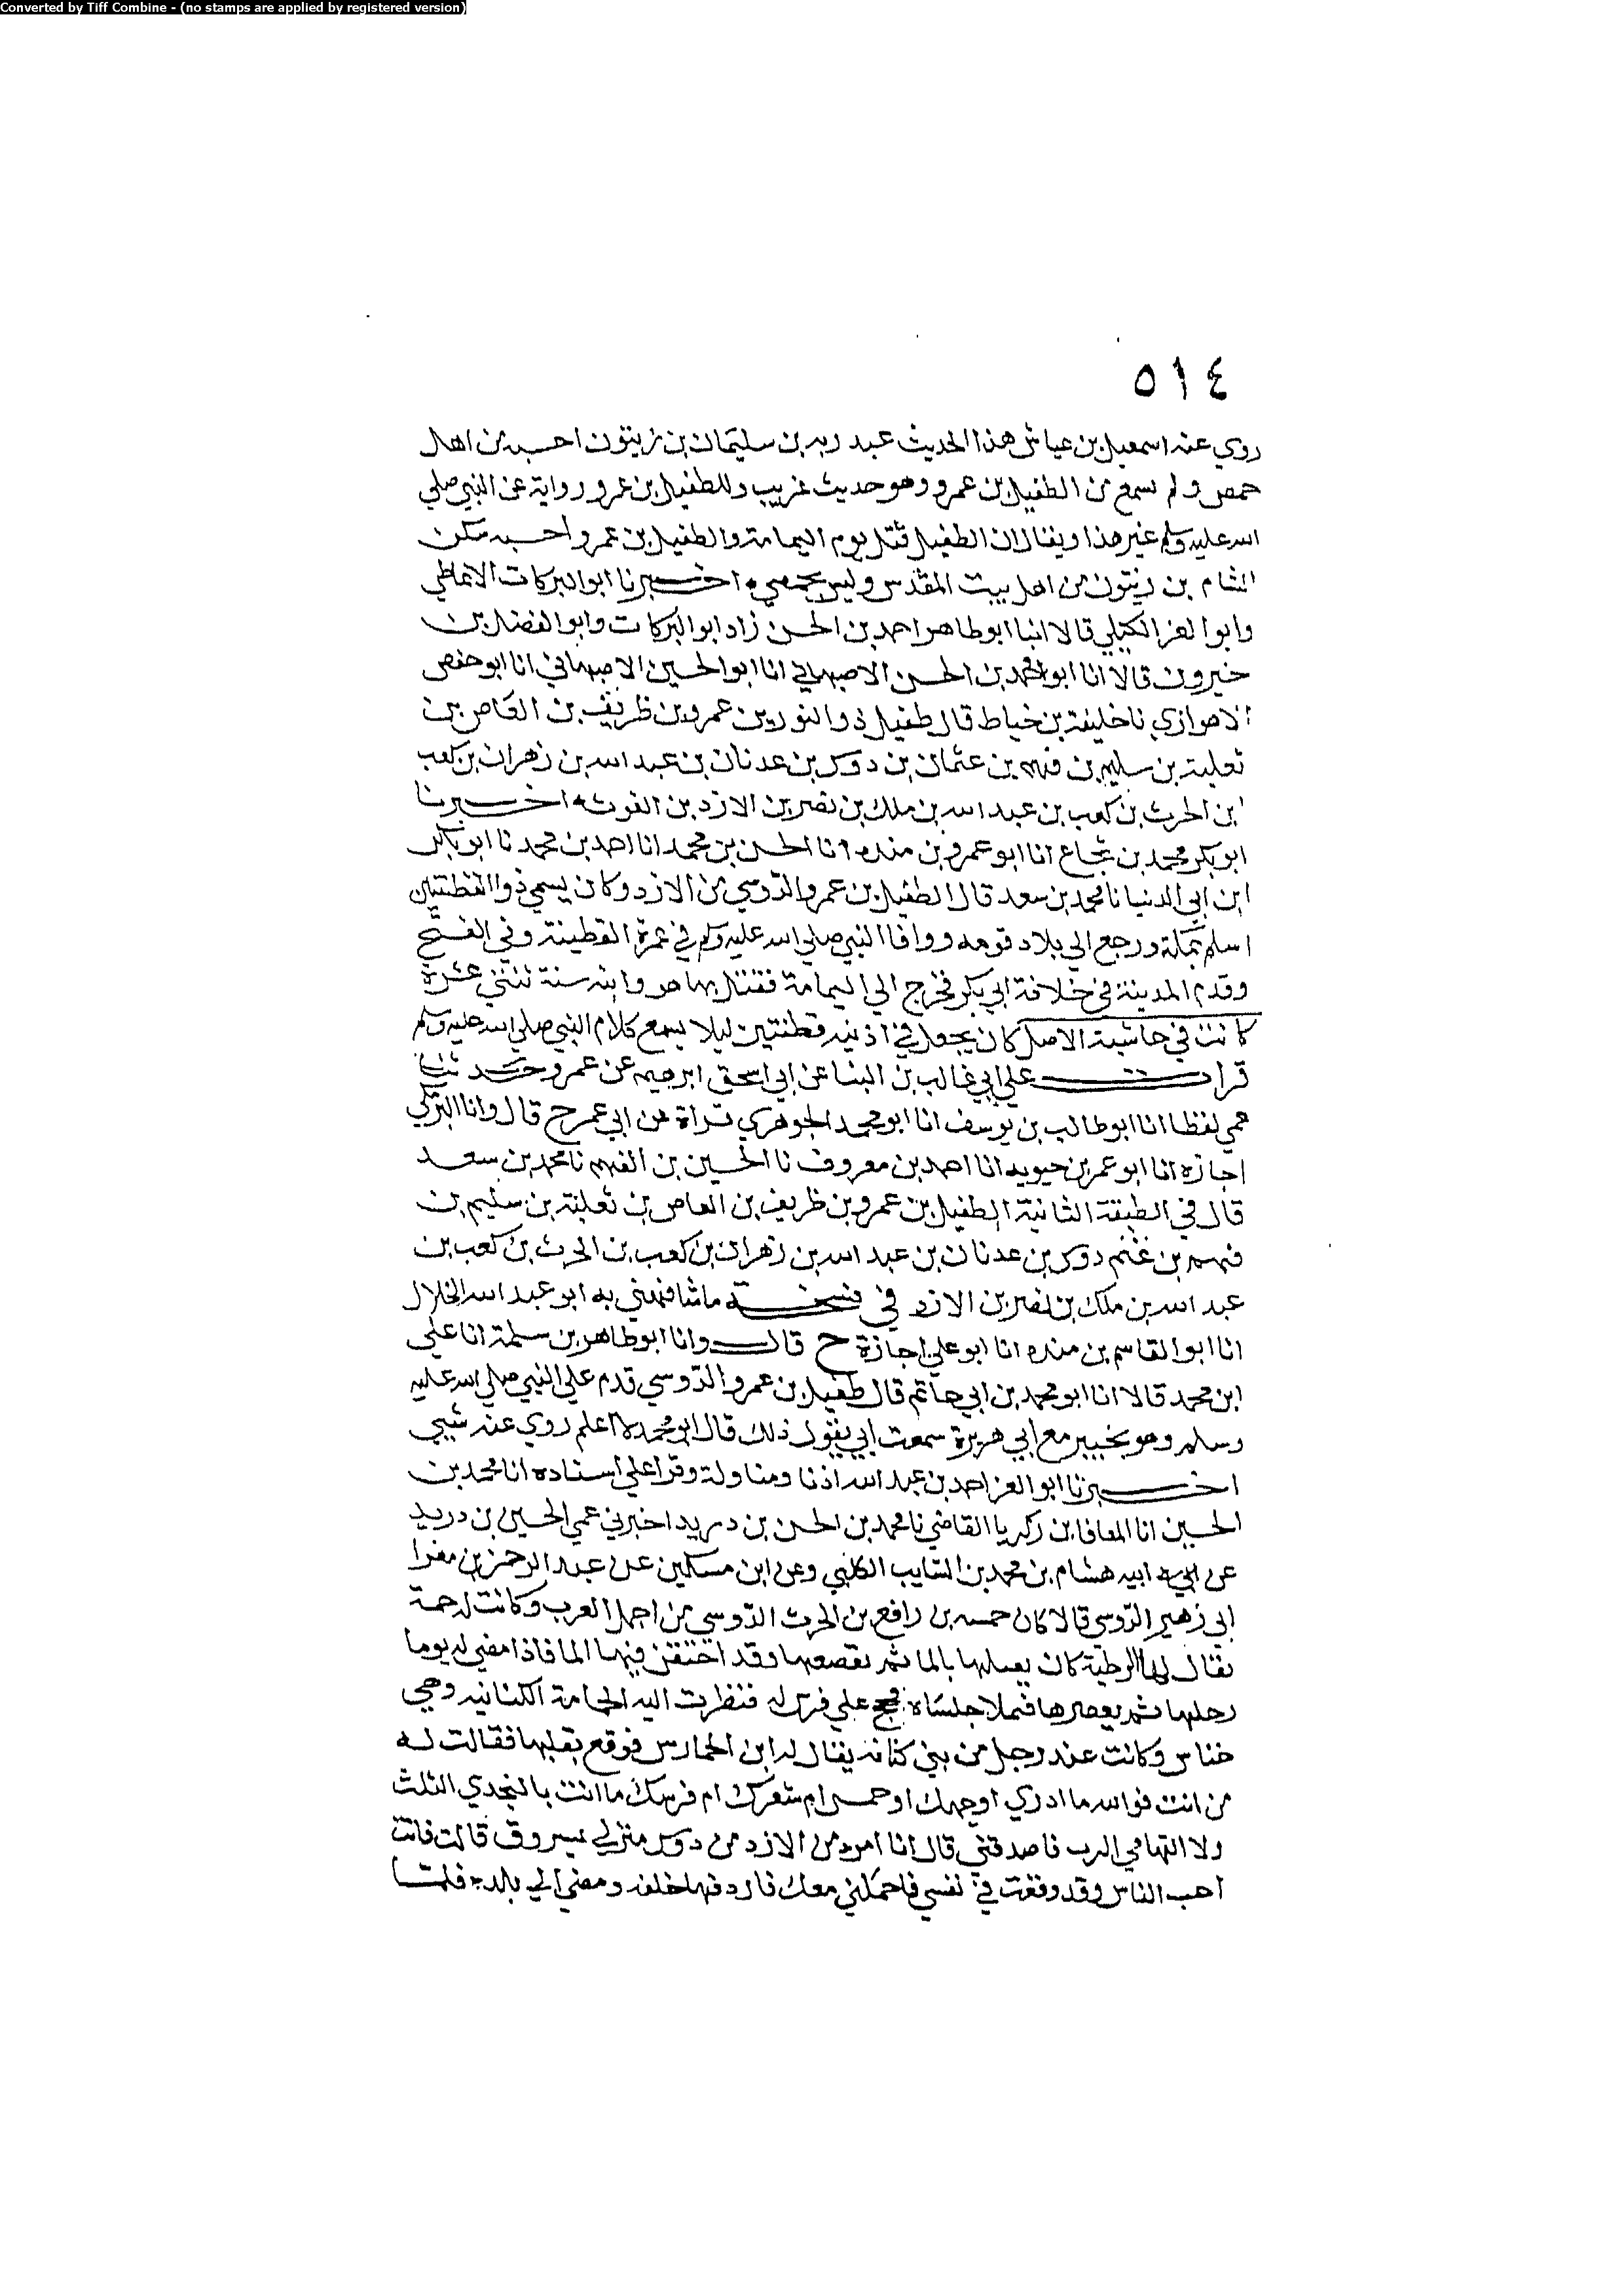 Converted by Tiff Combine - (no stamps are applied by registered version)
٥١٤
روي عنه اسمعيل بن عياش هذا الحديث عبد ربه بن سليمان بن زيتون احسبه من اهل
حمص ولم يسمع من الطفيل بن عمرو وهو حديث غريب وللطفيل بن عمرو رواية عن النبي صلي
الله عليه وسلم غير هذا ويقال ان الطفيل قتل يوم اليمامة والطفيل بن عمرو احسبه سكن
الشام بن زيتون من اهل بيت المقدس وليس بحمصي اخبرنا ابوالبركات الانماطي
وابوا لعز الكيلي قالا انبا ابوطاهر احمد بن الحسن زاد ابو البركات وابو الفضل بن
خيرون قالا انا ابو محمد بن الحسن الاصبهاني انا ابو الحسين الاصبهاني انا ابو حفص
الاهوازي نا خليفة بن خياط قال طفيل ذو النور بن عمرو بن ظريف بن العاص بن
ثعلبة بن سليم بن فهم بن عثمان بن دوس بن عدنان بن عبد الله بن زهران بن كعب
ابن الحرث بن كعب بن عبد الله بن ملك بن نصر بن الازد بن الغوث اخبرنا
ابو بكر محمد بن شجاع انا ابو عمرو بن منده انا الحسن بن محمد انا احمد بن محمد نا ابو بكر
ابن ابي الدنيا نا محمد بن سعد قال الطفيل بن عمرو الدوسي من الازد وكان يسمي ذو القطنتين
اسلم بمكة ورجع الي بلاد قومه ووافا النبي صلي الله عليه وسلم في عمرة القضية وفي الفتح
وقدم المدينة في خلافة ابي بكر فخرج الي اليمامة فقتل بها هو وابنه سنة ثنتي عشرة
كانت في حاشية الاصل كان يجعل في اذنيه قطنتين ليلا يسمع كلام النبي صلي الله عليه وسلم
قرات علي ابي غالب بن البنا عن ابي اسحق ابرهيم عن عمر وحدثنا
عمي لفظا انا ابو طالب بن يوسف انا ابو محمد الجوهري قراة من ابي عمر ح قال وانا البرمكي
اجازه انا ابو عمر بن حيويه انا احمد بن معروف نا الحسين بن الفهم نا محمد بن سعد
قال في الطبقة الثانية الطفيل بن عمرو بن ظريف بن العاص بن ثعلبة بن سليم بن
فهم بن غنم دوس بن عدنان بن عبد الله بن زهران بن كعب بن الحرث بن كعب بن
عبد الله بن ملك بن نصر بن الازد في نسخة ما شافهني به ابو عبد الله الخلال
انا ابو القاسم بن منده انا ابو علي اجازة ح قال وانا ابو طاهر بن سلمة انا علي
ابن محمد قالا انا ابو محمد بن ابي حاتم قال طفيل بن عمرو الدوسي قدم علي النبي صلي الله عليه
وسلم وهو بخيبر مع ابي هريرة سمعت ابي يقول ذلك قال ابو محمد لا اعلم روي عنه شيي
اخبرنا ابو العز احمد بن عبد الله اذنا ومناولة وقرا علي اسناده انا محمد بن
الحسين انا المعافا بن زكريا القاضي نا محمد بن الحسن بن دريد اخبرني عمي الحسين بن دريد
عن ابيه هشام بن محمد بن السايب الكلبي وعن ابن مسكين عن عبد الرحمن بن مغرا
ابي زهير الدوسي قالا كان حممه بن رافع بن الحرث الدوسي من اجمل العرب وكانت له جمة
يقال لها الرطبة كان يغسلها بالما ثم يعقصها وقد احتقن فيها الما فاذا مضي له يوما
رجلها ثم يعصرها فتملا جلساه فحج علي فرس له فنظرت اليه الحمامة الكنانيه وهي
خناس وكانت عند رجل من بني كنانة يقال له ابن الحمارس فوقع بقلبها فقالت له
من انت فوالله ما ادري اوجهك احسن ام شعرك ام فرسك ما انت بالنجدي الثلث
ولا التهامي الترب فاصدقني قال انا امرو من الازد من دوس منزلي بسروق قالت فانت
احب الناس وقد وقعت في نفسي فاحملني معك فاردفها خلفه ومضي الي بلده فلما